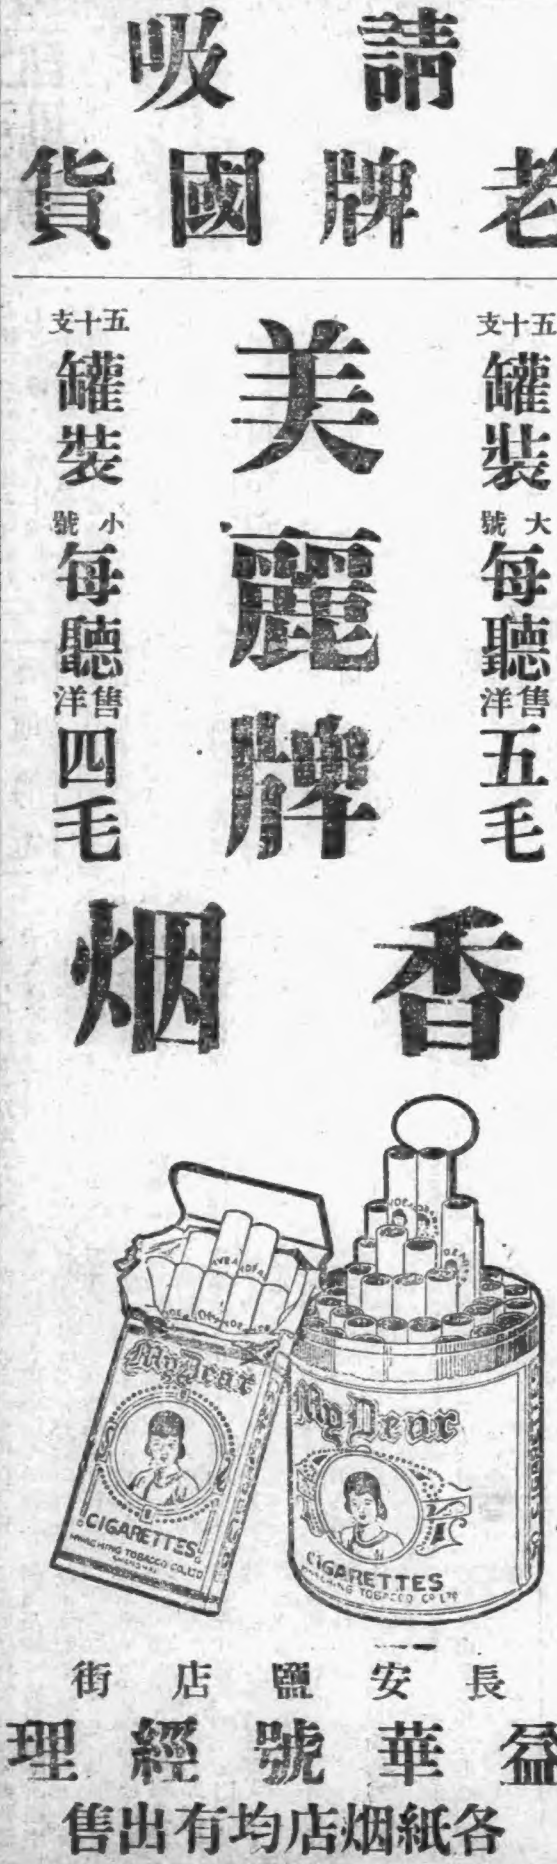 請吸
老牌國貨
五十支
罐裝
大號
每聽
售洋
五毛
美麗牌
香烟
五十支
罐裝
小號
每聽
售洋
四毛
My Dear
CIGARETTES
TOBACCO CO. LTD
My Dear
CIGARETTES
TOBACCO CO LTD
長安鹽店街
益華號經理
各紙烟店均有出售